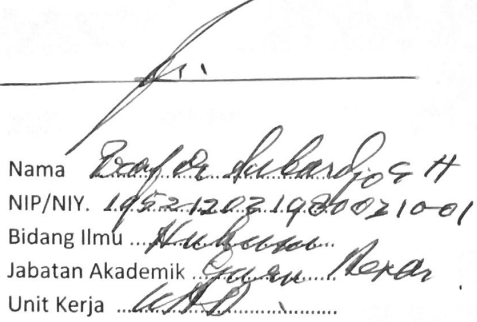 Nama Prof Dr Subardjo S H
NIP/NIY. 195212021980031001
Bidang Ilmu Hukum
Jabatan Akademik Guru Besar
Unit Kerja UAD